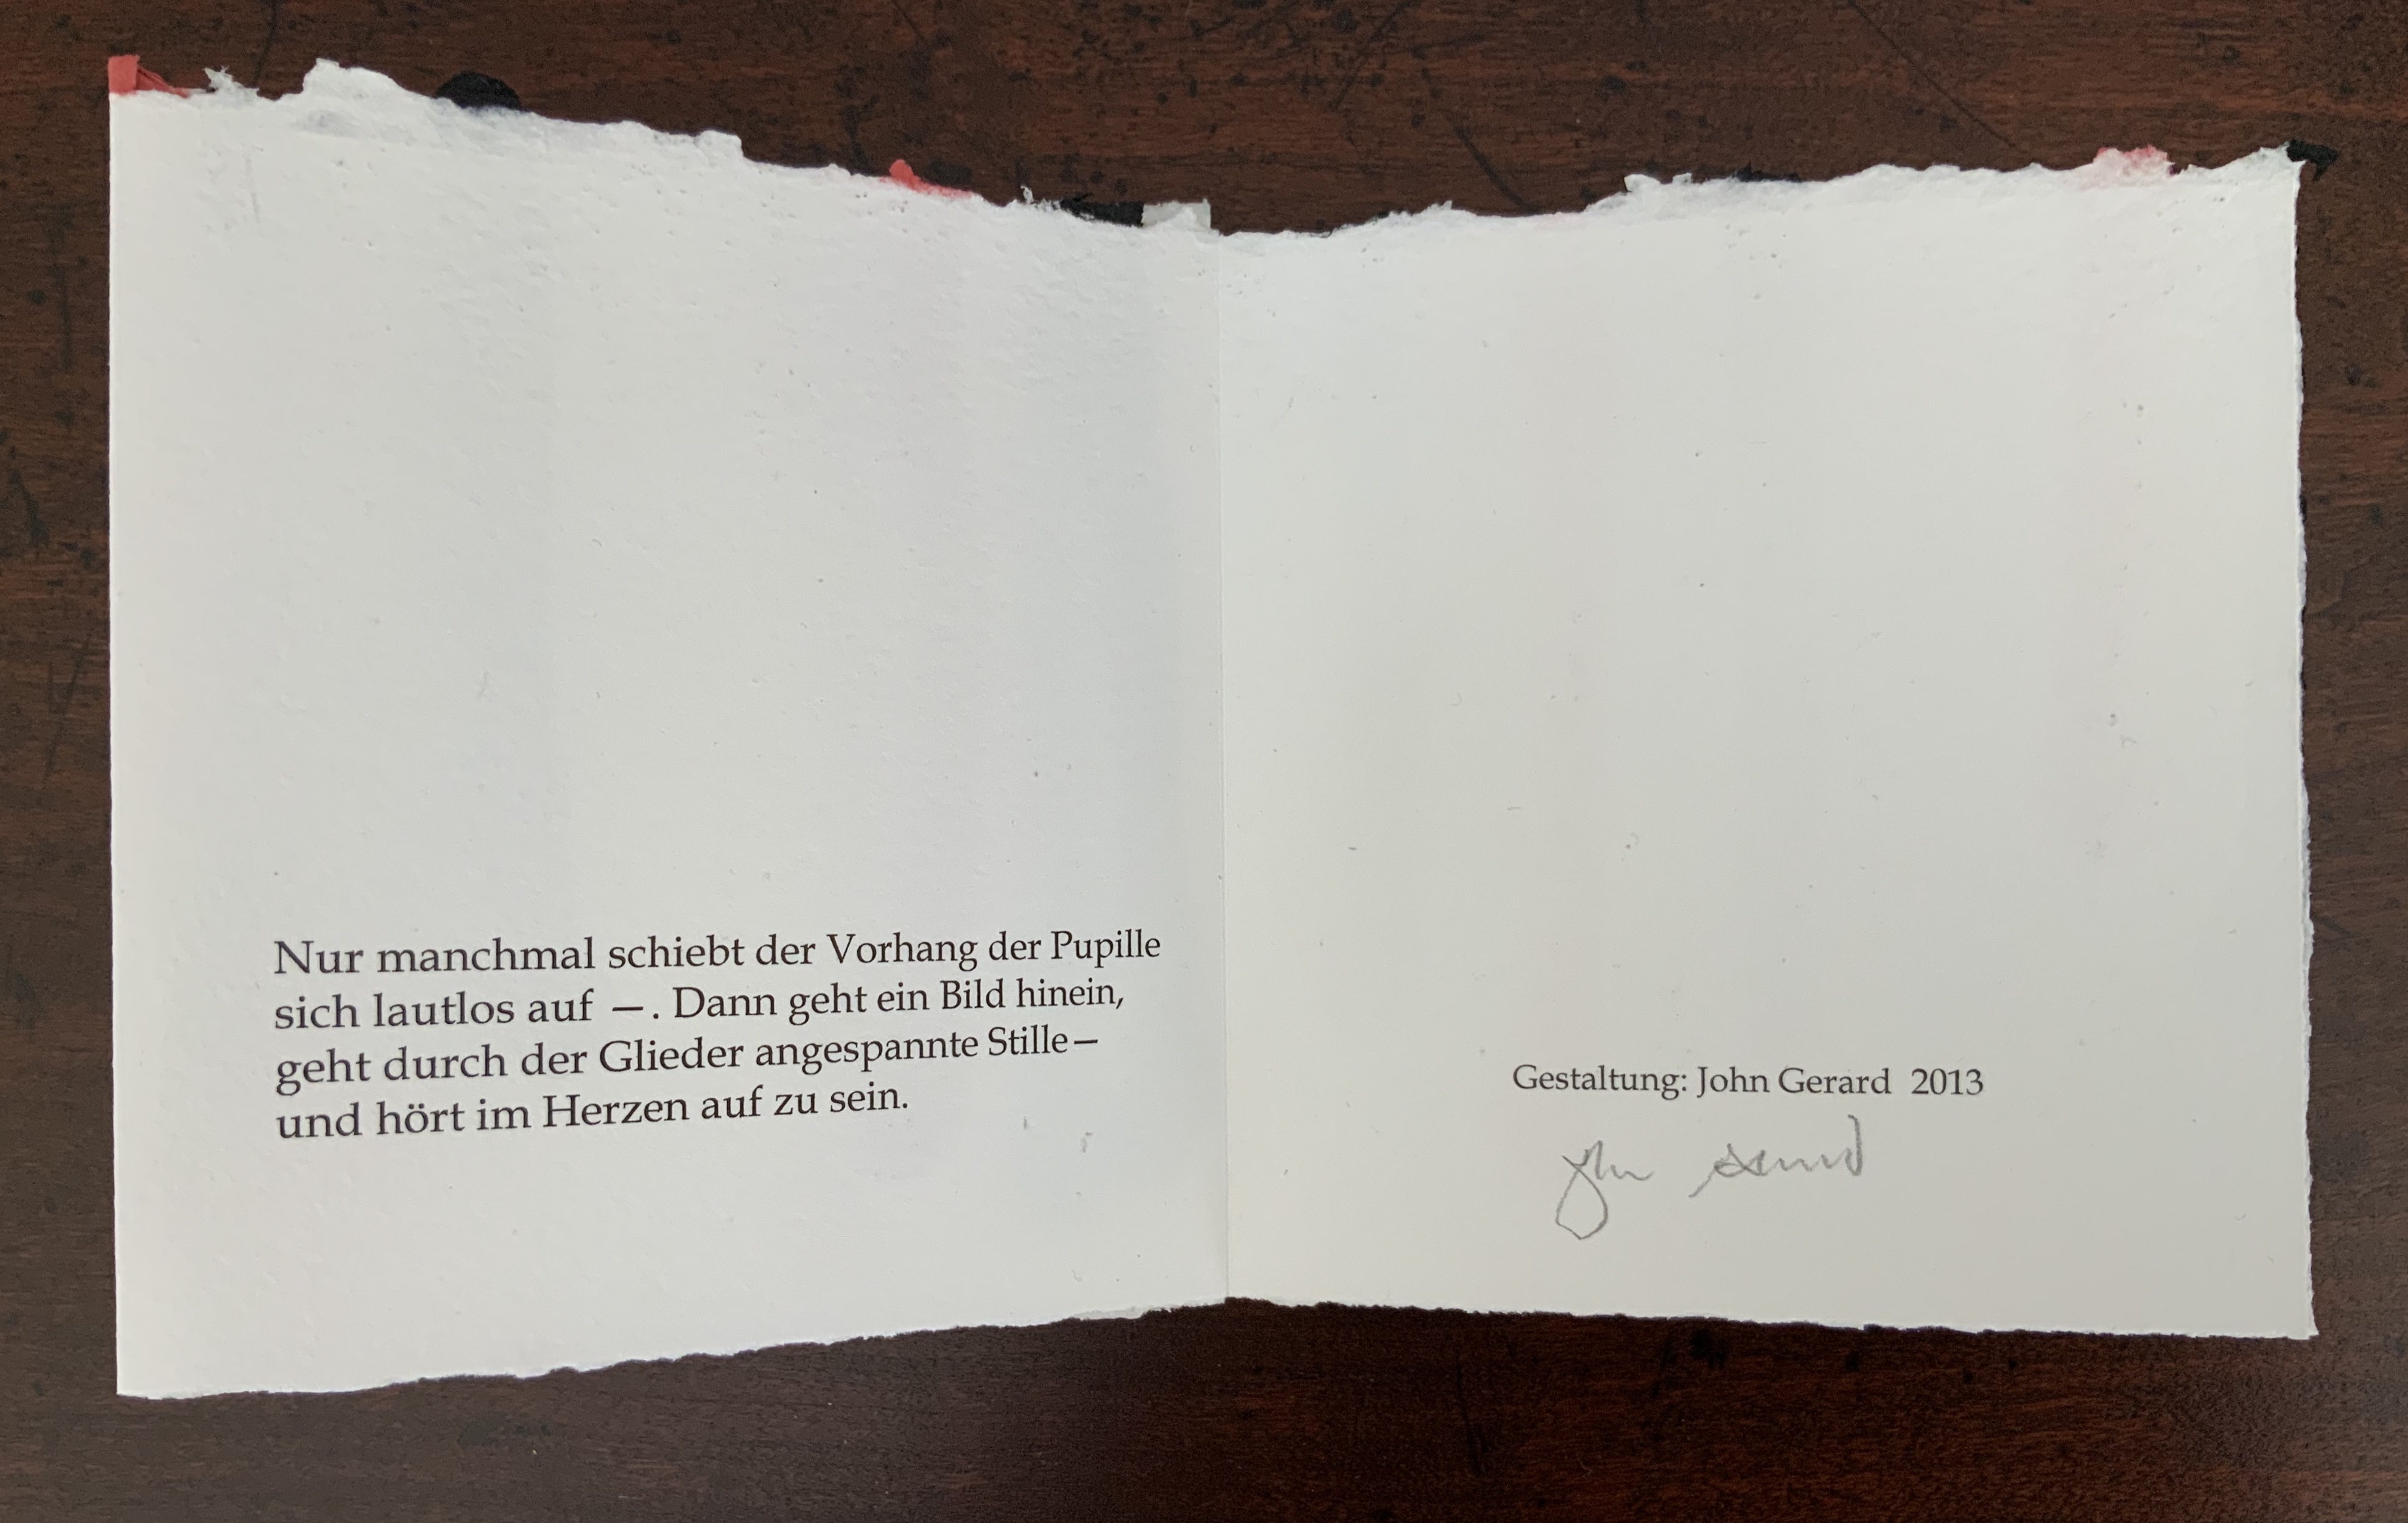 Nur manchmal schiebt der Vorhang der Pupille
sich lautlos auf —. Dann geht ein Bild hinein,
geht durch der Glieder angespannte Stille—
und hört im Herzen auf zu sein.
Gestaltung: John Gerard 2013
John Gerard